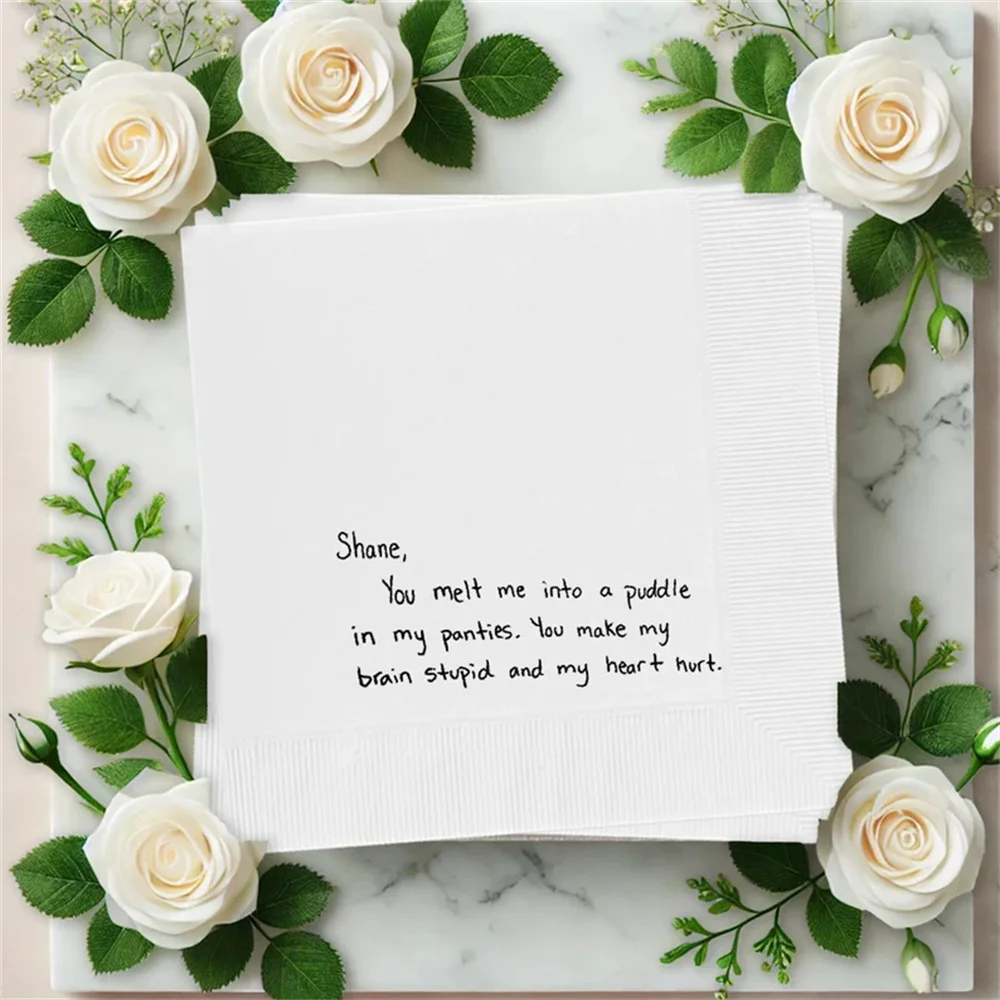 Shane,
You melt me into a puddle
in my panties. You make my
brain stupid and my heart hurt.